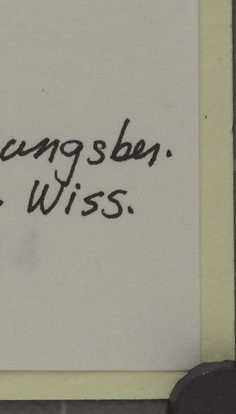 ungsber.
. Wiss.